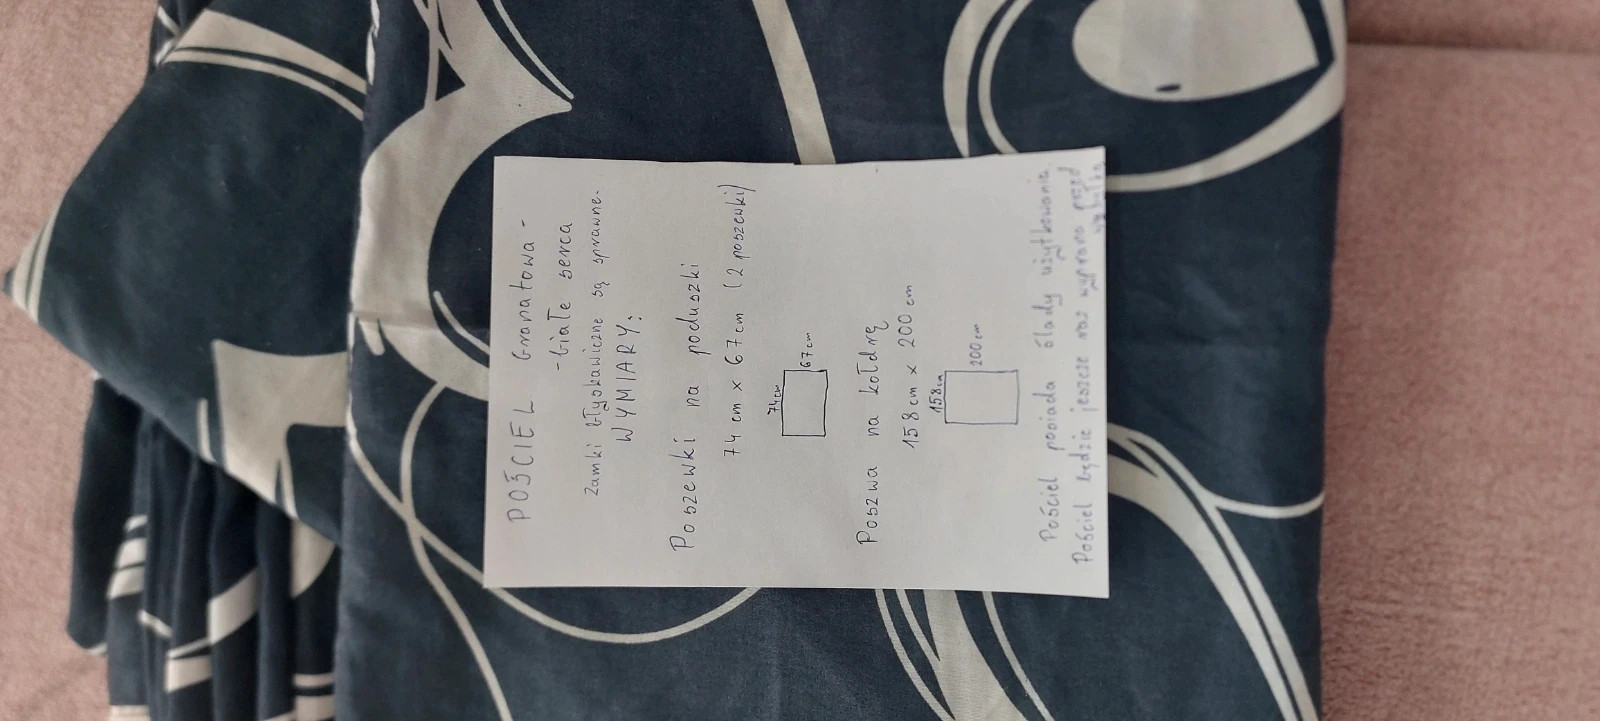 POŚCIEL Granatowa -
- białe serca
Zamki błyskawiczne są sprawne.
WYMIARY:
Poszewki na poduszki
74 cm x 67 cm (2 poszewki)
74 cm
67 cm
Poszwa na kołdrę
158 cm x 200 cm
158 cm
200 cm
Pościel posiada ślady użytkowania.
Pościel będzie jeszcze raz wyprana przed
wysyłką